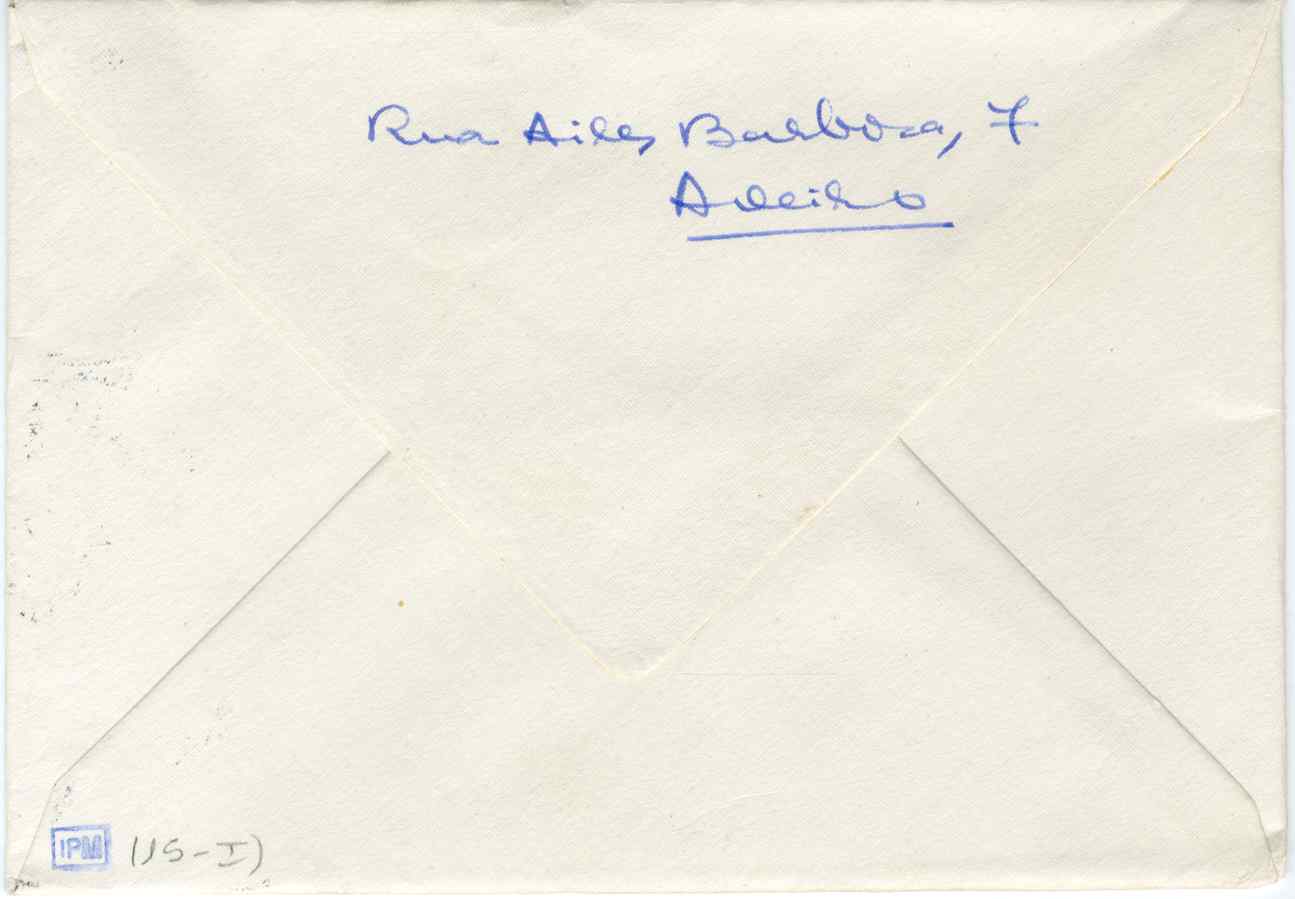 Rua Aires Barbosa, 7
Aveiro
IPM (JS-I)